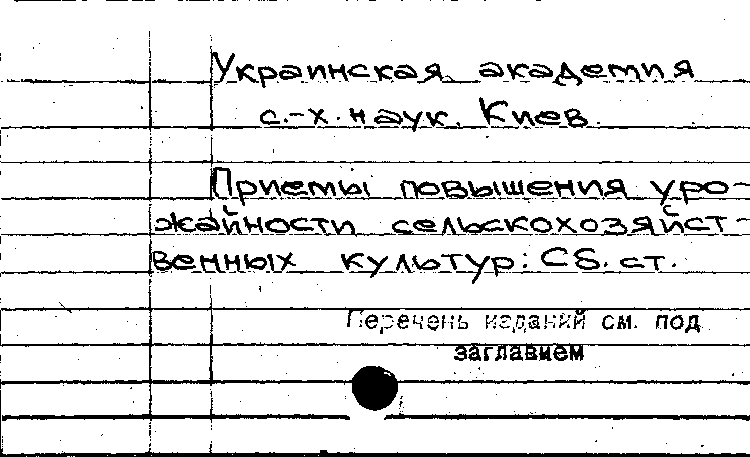 Украинская академия
с.-х. наук. Киев.
Приемы повышения уро-
жайности сельскохозяйст-
венных культур: Сб. ст.
Перечень изданий см. под
заглавием